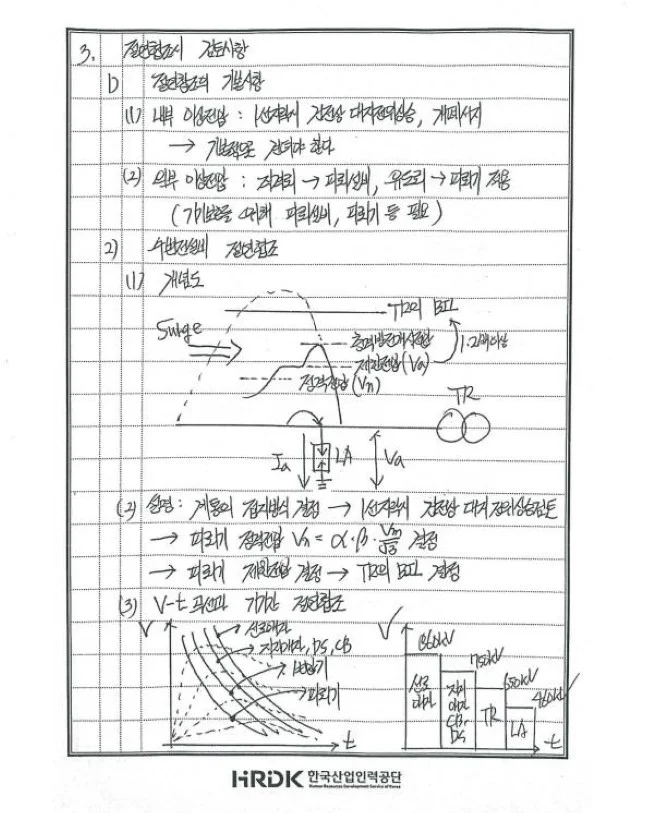 3. 절연협조시 검토사항
1) 절연협조의 기본사항
(1) 내부 이상전압 : 1선지락시 건전상 대지전위상승, 개폐서지
→ 기본적으로 견뎌야 한다
(2) 외부 이상전압 : 직격뢰 → 피뢰설비, 유도뢰 → 피뢰기 적용
(기기보호를 위해 피뢰설비, 피뢰기 등 필요)
2) 수변전설비 절연협조
(1) 개념도
TR의 BIL
Surge
충격방전개시전압
제한전압(Va)
1.2배이상
정격전압(Vn)
TR
Ia
LA
Va
(2) 설명 : 계통의 접지방식 결정 → 1선지락시 건전상 대지전위상승검토
→ 피뢰기 정격전압 Vn = α·β·Vm/√3 결정
→ 피뢰기 제한전압 결정 → TR의 BIL 결정
(3) V-t 곡선과 기기간 절연협조
V
선로애자
지지애자, DS, CB
변압기
피뢰기
t
V
860kV
750kV
650kV
460kV
선로애자
지지애자 CB, DS
TR
LA
t
HRDK 한국산업인력공단
Human Resources Development Service of Korea